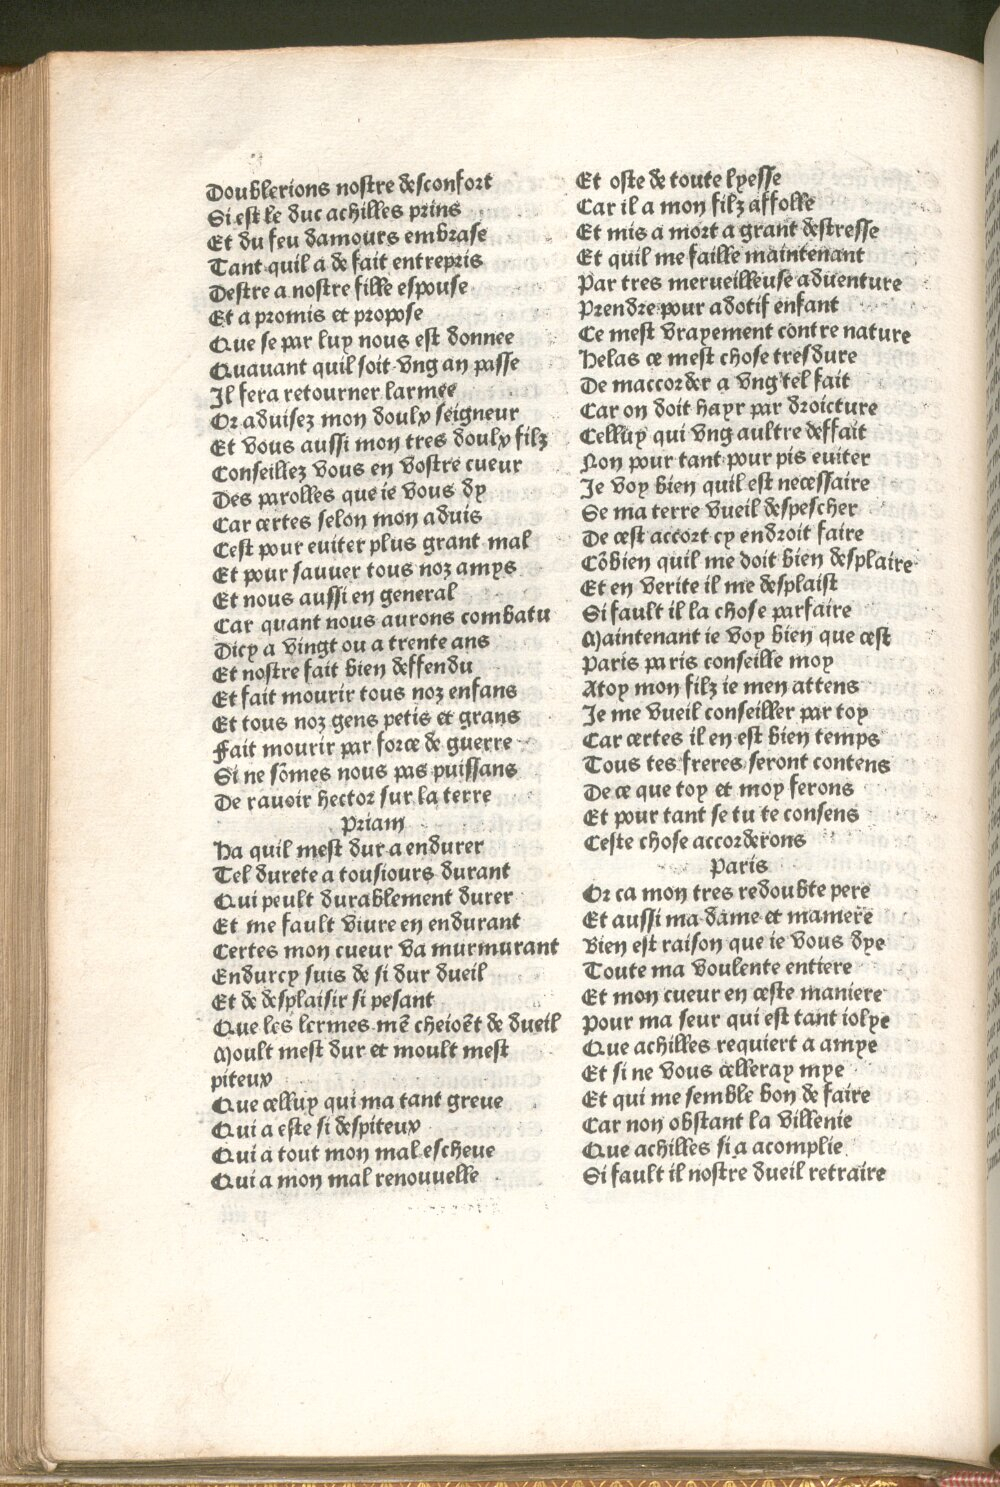 Doublerions nostre desconfort
Si est le duc achilles prins
Et du feu damours embrase
Tant quil a de fait entrepris
Destre a nostre fille espouse
Et a promis et propose
Que se par luy nous est donnee
Quauant quil soit vng an passe
Il fera retourner larmee
Or aduisez mon doulx seigneur
Et vous aussi mon tres doulx filz
Conseillez vous en vostre cueur
Des parolles que ie vous dy
Car certes selon mon aduis
Cest pour euiter plus grant mal
Et pour sauuer tous noz amys
Et nous aussi en general
Car quant nous aurons combatu
Dicy a vingt ou a trente ans
Et nostre fait bien deffendu
Et fait mourir tous noz enfans
Et tous noz gens petis et grans
Fait mourir par force de guerre
Si ne sõmes nous pas puissans
De rauoir hector sur la terre
Priam
Ha quil mest dur a endurer
Tel durete a tousiours durant
Qui peult durablement durer
Et me fault viure en endurant
Certes mon cueur va murmurant
Endurcy suis de si dur dueil
Et de desplaisir si pesant
Que les lermes mẽ cheioẽt de dueil
Moult mest dur et moult mest
piteux
Que celluy qui ma tant greue
Qui a este si despiteux
Qui a tout mon mal escheue
Qui a mon mal renouuelle
Et oste de toute lyesse
Car il a mon filz affolle
Et mis a mort a grant destresse
Et quil me faille maintenant
Par tres merueilleuse aduenture
Prendre pour adotif enfant
Ce mest vrayement contre nature
Helas ce mest chose tresdure
De maccorder a vng tel fait
Car on doit hayr par droicture
Celluy qui vng aultre deffait
Non pour tant pour pis euiter
Je voy bien quil est necessaire
Se ma terre vueil despescher
De cest accort cy endroit faire
Cõbien quil me doit bien desplaire
Et en verite il me desplaist
Si fault il la chose parfaire
Maintenant ie voy bien que cest
Paris paris conseille moy
A toy mon filz ie men attens
Je me vueil conseiller par toy
Car certes il en est bien temps
Tous tes freres seront contens
De ce que toy et moy ferons
Et pour tant se tu te consens
Ceste chose accorderons
Paris
Or ca mon tres redoubte pere
Et aussi ma dame et mamere
Bien est raison que ie vous dye
Toute ma voulente entiere
Et mon cueur en ceste maniere
Pour ma seur qui est tant iolye
Que achilles requiert a amye
Et si ne vous celleray mye
Et qui me semble bon de faire
Car non obstant la villenie
Que achilles si a acomplie
Si fault il nostre dueil retraire